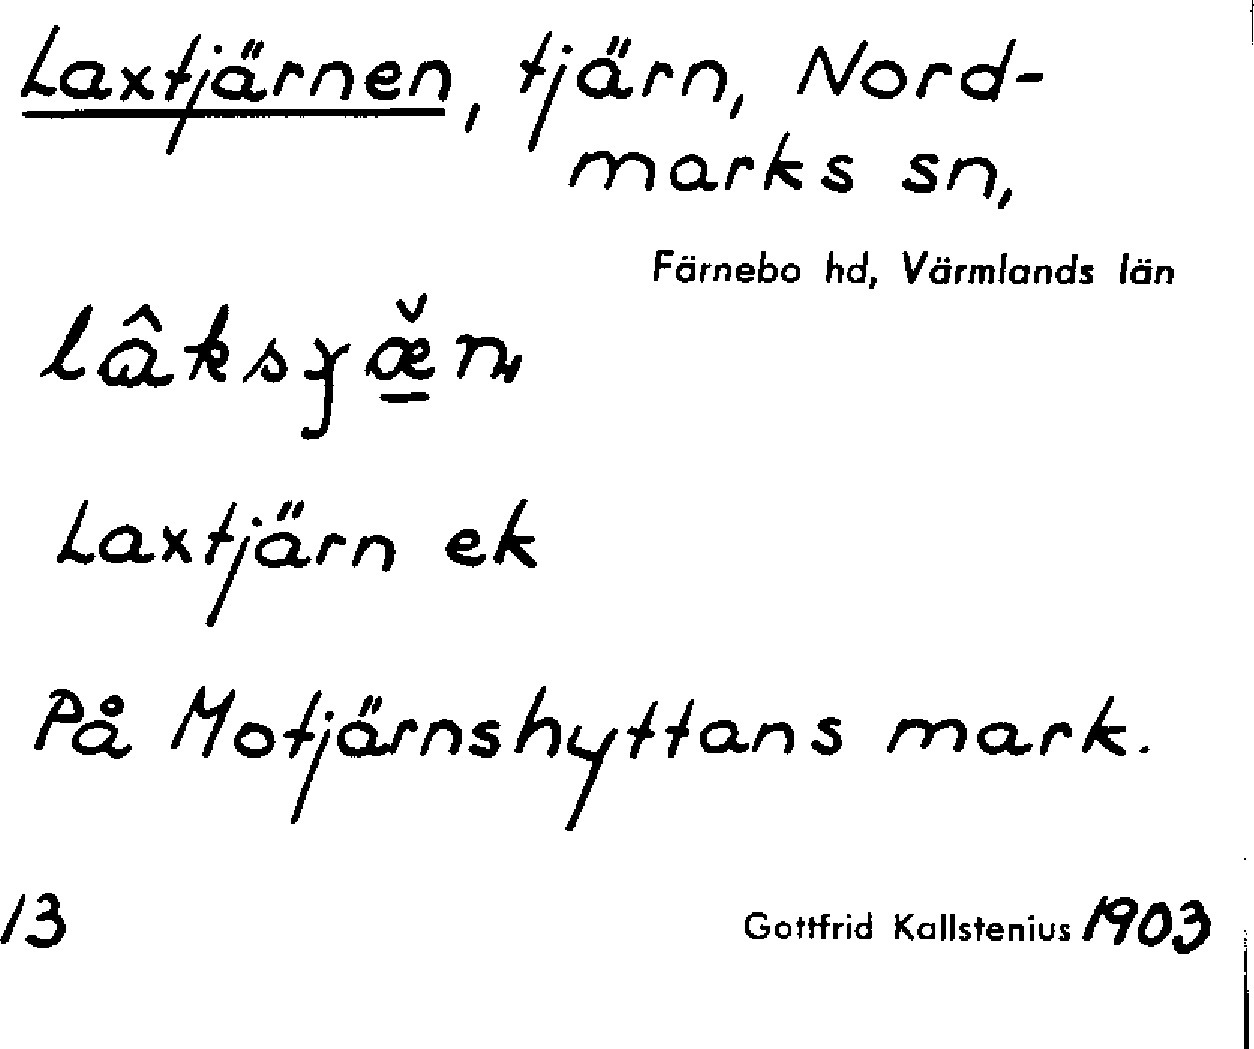 Laxtjärnen, tjärn, Nord-
marks sn,
Färnebo hd, Värmlands län
Laxtjärn ek
På Motjärnshyttans mark.
13
Gottfrid Kallstenius 1903